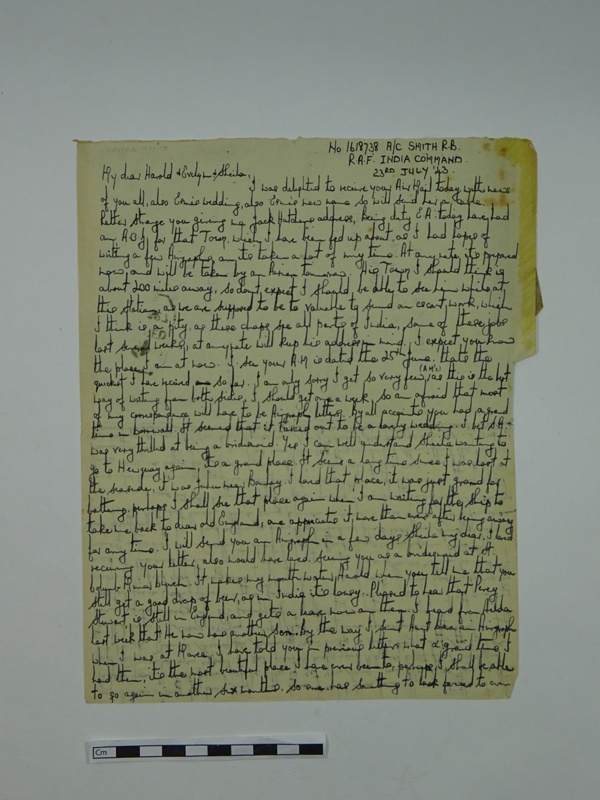 No 1618738 A/C SMITH R.B.
R.A.F. INDIA COMMAND
23RD JULY '43
My dear Harold & Evelyn & Sheila,
I was delighted to receive your Air Mail today with news
of you all, also Ernies wedding, also Ernies new name so will send her a cable.
Rather strange you giving me Jack address, being duty E.A. today have had
any A for that Town, which I have been fed up about, as I had hopes of
writing a few Airgraphs, it's taken a lot of my time. At any rate, it's prepared
now, and will be taken by an Airman tomorrow. His Town I should think is
about 200 miles away, so dont expect I should be able to see him while at
this Station, as we are supposed to be to valuable to send on escort work, which
I think is a pity, as these chaps see all parts of India, some of these jobs
last several weeks, at any rate will keep his address in mind, I expect you know
the place I am at now. I see your A.M is dated the 25th June, thats the
quickest I have received one so far. I am only sorry I get so very few (A M's) as this is the best
way of writing from both sides, I should get one a week, so am afraid that most
of my correspondence will have to be Airgraph letters, by all accounts you had a grand
time in Cornwall. It seemed that it turned out to be a lovely wedding. I bet S.A.
was very thrilled at being a bridesmaid. Yes I can well understand Sheila wanting to
go to Newquay again, its a grand place. It seems a long time since I was last at
the seaside, it was Juhu near Bombay I liked that place, it was just grand for
bathing, perhaps I shall see that place again when I am waiting for the ship to
take me back to dear old England, one appreciates it more than ever after being away
for any time. I will send you an Airgraph in a few days Sheila my dear, I liked
receiving your letter, also would have liked seeing you as a bridesmaid at St
Columb Minor Church. It makes my mouth water, Harold when you tell me that you
still get a good drop of beer, as in India its lousy. Pleased to hear that Percy
Stewart is still in England, and gets a leave now and then. I heard from Hilda
last week that He now has another son. By the way I sent Aunt an Airgraph
when I was at . I have told you in previous letters what a grand time I
had there, its the most beautiful place I have ever been to, perhaps I shall be able
to go again in another six months. So one has something to look forward to even